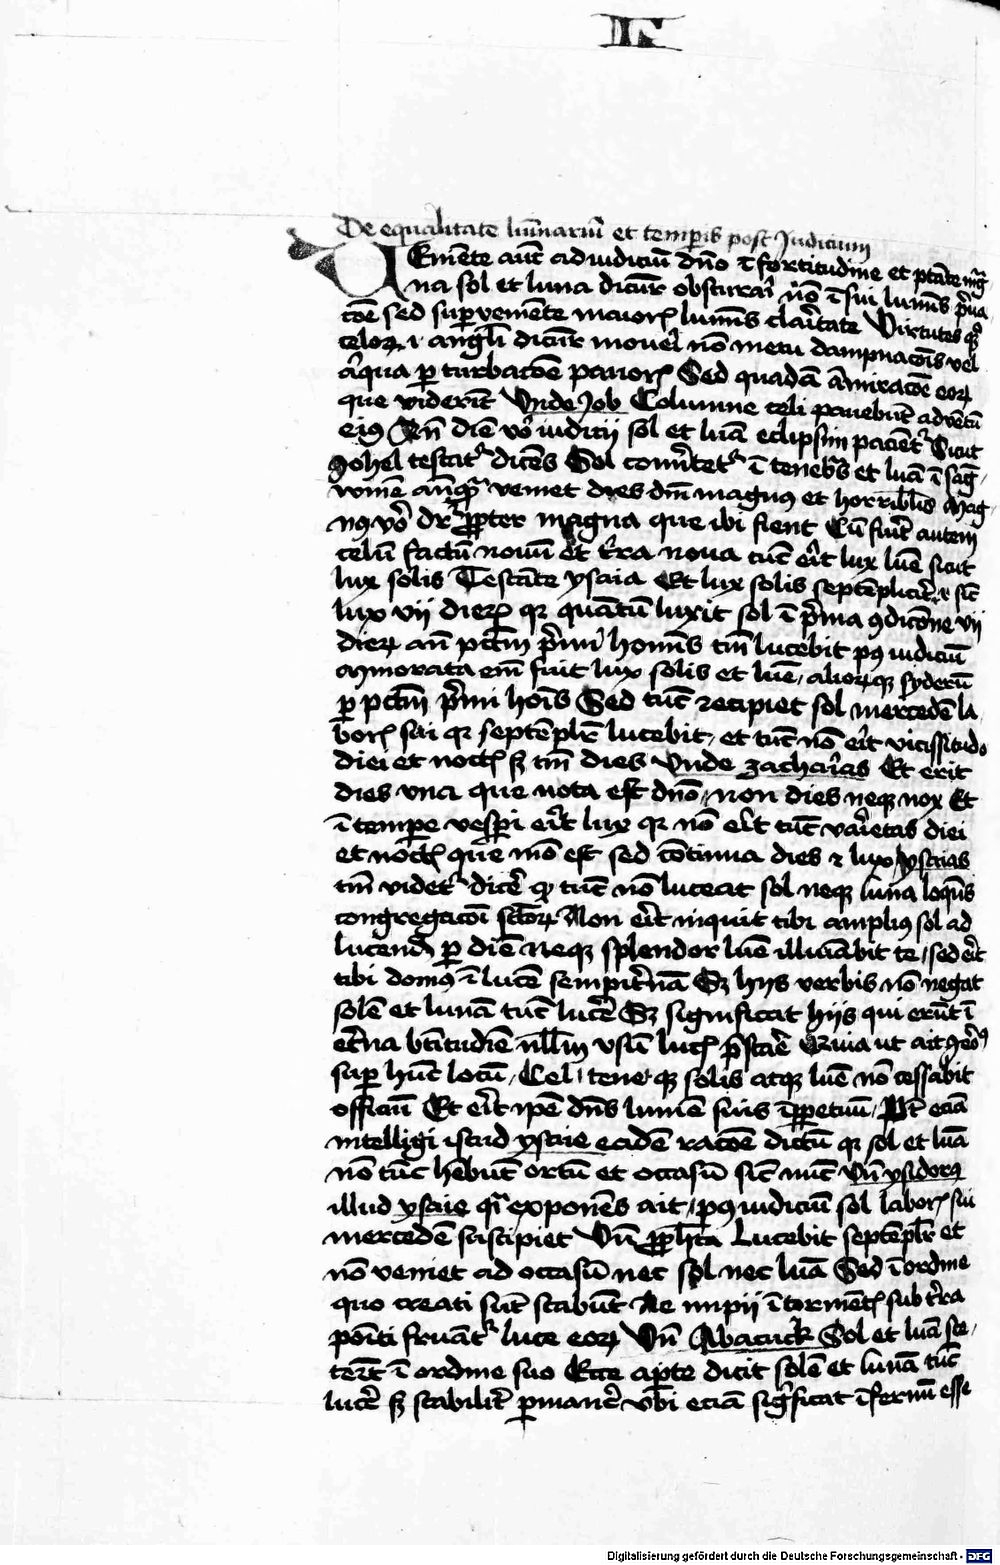 De equalitate lūnariū et temp̄is post Judicium
Uemēte aūt ad iudiciū dn̄o ī fortitudine et ptāte mḡ
na sol et luna dicūr obscurari nō ī sui lumīs p̄ua
cōe sed sup̲veniente maioris lumīs claritate Virtutes qͥ
celoꝝ .i. angli dicūr moueri nō metu dampnacōis vel
aliqua p̲turbacōe pauoris Sed quadā āmiracōe eoꝝ
que viderīt Vnde Job Columne celi pauebūt aduētū
eiꝰ An̄ diē vō iudicij sol et lūa eclipsim pacient͛ Sicut
Johel testat͛ dicēs Sol conūtet͛ ī tenebͣs et lūa ī sāg
winē anq̄ͣ veniet dies dn̄i magnus et horribilis Mag
nꝰ vō dr̄ p̲pter magna que ibi fient Cū fuīt autem
celū factū nouū et t̄ra noua tūc erit lux lūe sicut
lux solis Testāte ysaia Et lux solis septēplicit̄ .i. sic̄
lux vij dierꝝ qr quātū luxit sol ī p̄ma ꝯdicōne vij
dierꝝ an̄ pctm̄ p̄mi homīs tm̄ lucebit pꝰ iudiciū
Mīorata em̄ fuit lux solis et lūe aliorꝝqꝫ syderū
p̲ pctm̄ p̄mi hoīs Sed tūc recipiet sol mercedē la
boris sui qr septēplic̄ lucebit et tūc nō erit vicissitudo
diei et noctis sꝫ tm̄ dies Vnde zacharias Et erit
dies vna que nota est dn̄o non dies neqꝫ nox Et
ī tempe vesp̲i erit lux qr nō erit tūc varietas diei
et noctis que mō est sed cōtinua dies ⁊ lux ysaias
tm̄ videt͛ dicē qꝫ tūc nō luceat sol neqꝫ luna loqns
congregacōi sctōrꝝ Non erit inquit tibi ampliꝰ sol ad
lucendū p̲ diē neqꝫ splendor lūe illuīabit te sed erit
tibi domīꝰ ī lucē sempit̄nā Sꝫ hijs verbis nō negat
solē et lunā tūc lucē Sꝫ significat hijs qui erūt ī
et̄na btitudīe nllm̄ vsū lucis p̄stare Quia ut ait Jeroꝰ
sup̲ hūc locū Celi terreqꝫ solis atqꝫ lūe nō cessabit
officiū Et erit ip̄e dn̄s lumē suis īp̲petuū Pt̄ eciā
intelligi istud ysaie eadē racōe dictū qr sol et lūa
nō tūc hēbūt ortū et occasū sic̄ nūc Vn̄ ysidorꝰ
illud ysaie qͥ exponēs ait pꝰ iudiciū sol laboris sui
mercedē suscipiet Vn̄ p̲pheta Lucebit septēplr̄ et
nō veniet ad occasū nec sol nec lūa Sed ī ordine
quo creati sūt stabūt Ne impij ī tormētis sub t̄ra
poīti fruāt͛ luce eoꝝ Vn̄ Abacuck Sol et lūa ste
terūt ī ordine suo Ecce ap̲te dicit solē et lunā tūc
lucē sꝫ stabilit̄ p̲mane̅ vbi eciā significat īfernū esse
Digitalisierung gefördert durch die Deutsche Forschungsgemeinschaft - DFG